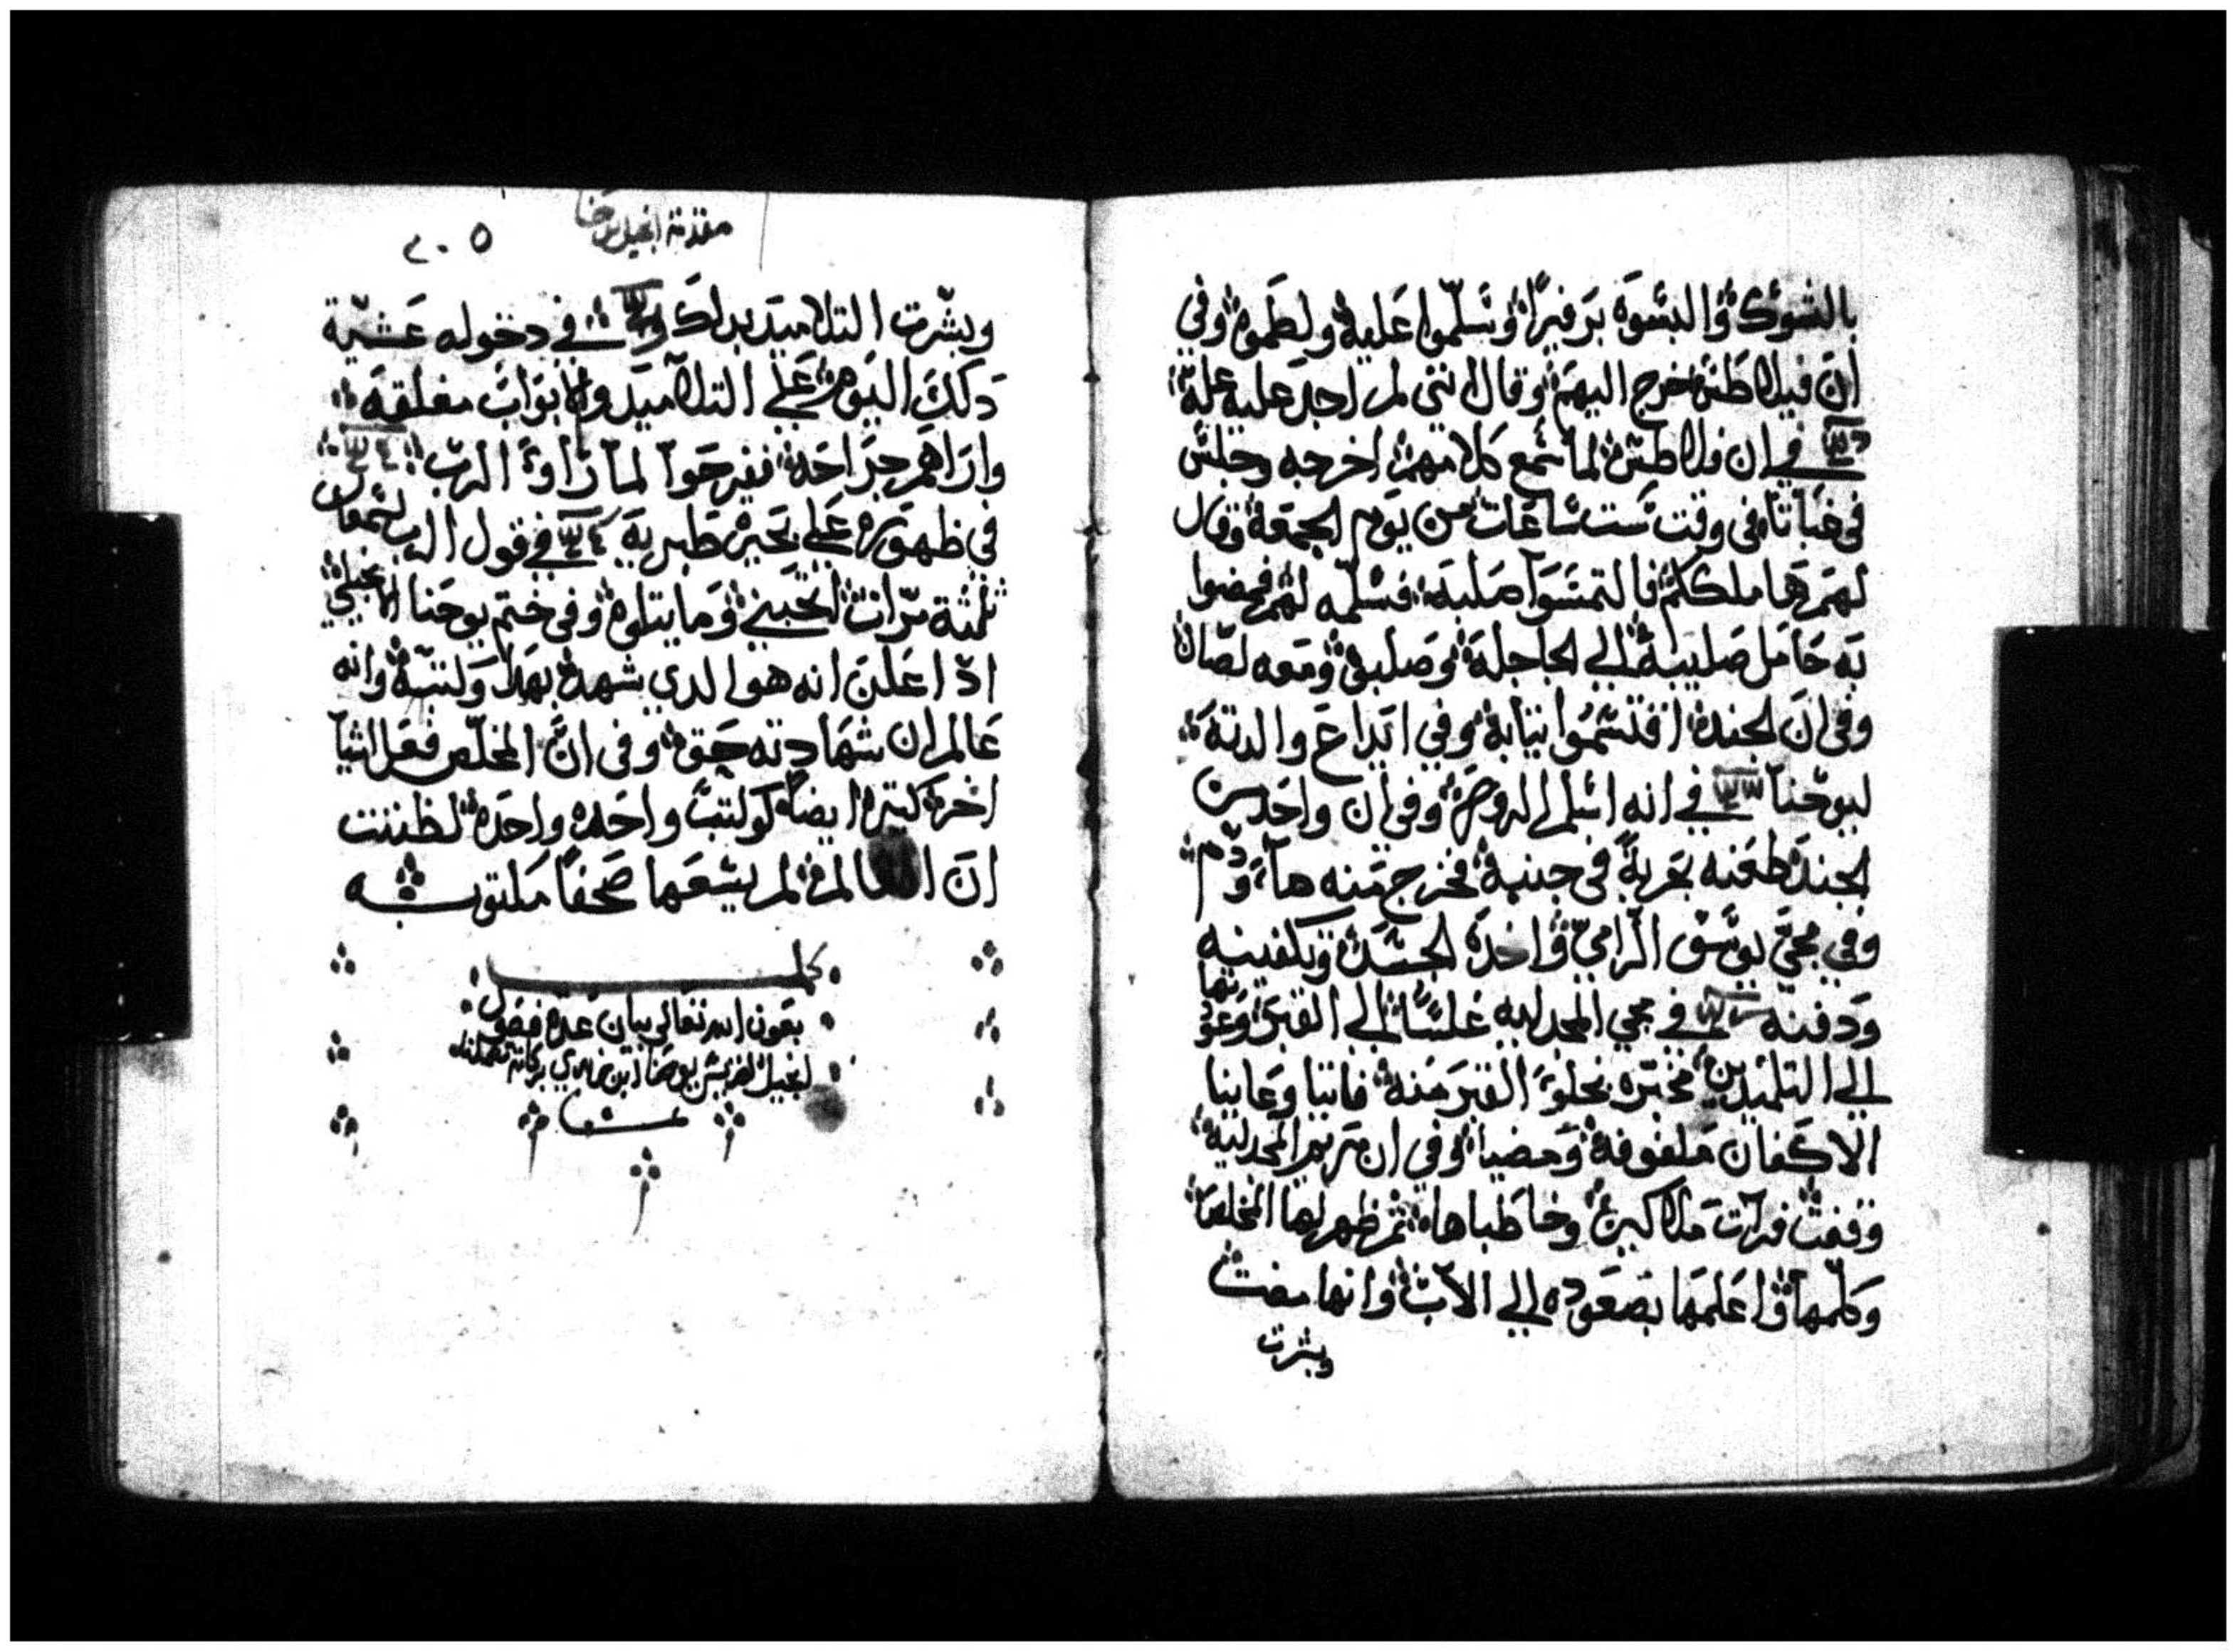 بالشوك والبسوه برفيرًا وسلّموا عليه ولطموه وفي
ان فيلاطس خرج اليهم وقال انني لم اجد عليه علة
في ان فلاطس لما سمع كلامهم اخرجه وجلس
في غباتا وفي وقت ست ساعات من يوم الجمعة وقال
لهم ها ملككم فالتمسوا صلبه فسلمه لهم فمضوا
به حامل صليبه الي الجاجلة وصلبوه ومعه لصان
وفي ان الجند اقتسموا ثيابه وفي ايداع والدته
ليوحنا في انه اسلم الروح وفي ان واحد من
الجند طعنه بحربة في جنبه فخرج منه ماء ودم
وفي مجي يوسف الرامي واخده الجسد وتكفينه
ودفنه في مجي المجدليه غلسًا الي القبر وعودتها
الي التلميدين مخبره بخلو القبر منه فاتيا وعاينا
الاكفان ملفوفة ومضيا وفي ان مريم المجدلية
وقفت فرات ملاكين وخاطباها ثم ظهر لها المخلص
وكلمها واعلمها بصعوده الي الاب وانها مضت
وبشرت
مقدمة انجيل يوحنا
٢٠٥
وبشّرت التلاميد بدلك في دخوله عشيّة
دلك اليوم علي التلاميد والابواب مغلقه
واراهم جراحه ففرحوا لما راوا الرب
في ظهوره علي بحيرة طبرية في قول الرب لسمعان
ثلثة مرات اتحبني وما يتلوه وفي ختم يوحنا الانجيلي
اد اعلن انه هو الدي شهد بهدا وكتبه وانه
عالم ان شهادته حق وفي ان المخلّص فعل اشيآ
اخر كثيره ايضاً لو كتبت واحده واحده لظننت
ان العالم لم يسعها صحفاً مكتوبه
كمل
بعون الله تعالي بيان عدة فصول
انجيل القديس يوحنا ابن زبدي بركاته تشملنا